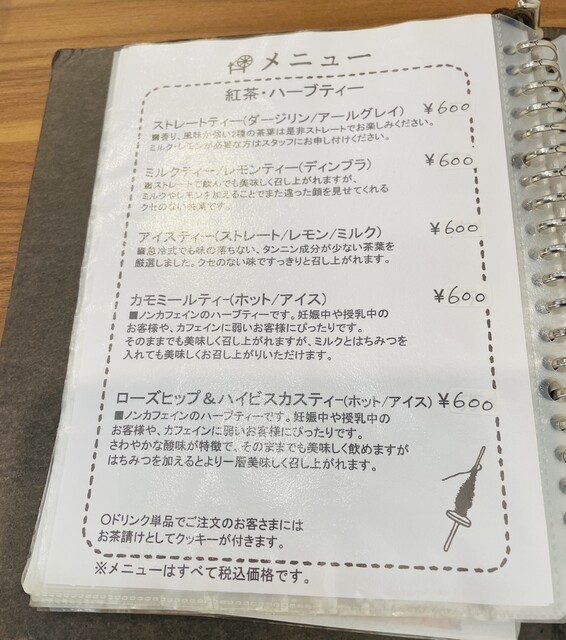 メニュー
紅茶・ハーブティー
ストレートティー(ダージリン/アールグレイ) ¥600
■香り、風味が強い2種の茶葉は是非ストレートでお楽しみください。
ミルク・レモンが必要な方はスタッフにお申し付けください。
ミルクティー/レモンティー(ディンブラ) ¥600
■ストレートで飲んでも美味しく召し上がれますが、
ミルクやレモンを加えることでまた違った顔を見せてくれる
クセのない茶葉です。
アイスティー(ストレート/レモン/ミルク) ¥600
■急冷式でも味の落ちない、タンニン成分が少ない茶葉を
厳選しました。クセのない味ですっきりと召し上がれます。
カモミールティー(ホット/アイス) ¥600
■ノンカフェインのハーブティーです。妊娠中や授乳中の
お客様や、カフェインに弱いお客様にぴったりです。
そのままでも美味しく召し上がれますが、ミルクとはちみつを
入れても美味しくお召し上がりいただけます。
ローズヒップ&ハイビスカスティー(ホット/アイス) ¥600
■ノンカフェインのハーブティーです。妊娠中や授乳中の
お客様や、カフェインに弱いお客様にぴったりです。
さわやかな酸味が特徴で、そのままでも美味しく飲めますが
はちみつを加えるとより一層美味しく召し上がれます。
○ドリンク単品でご注文のお客さまには
お茶請けとしてクッキーが付きます。
※メニューはすべて税込価格です。